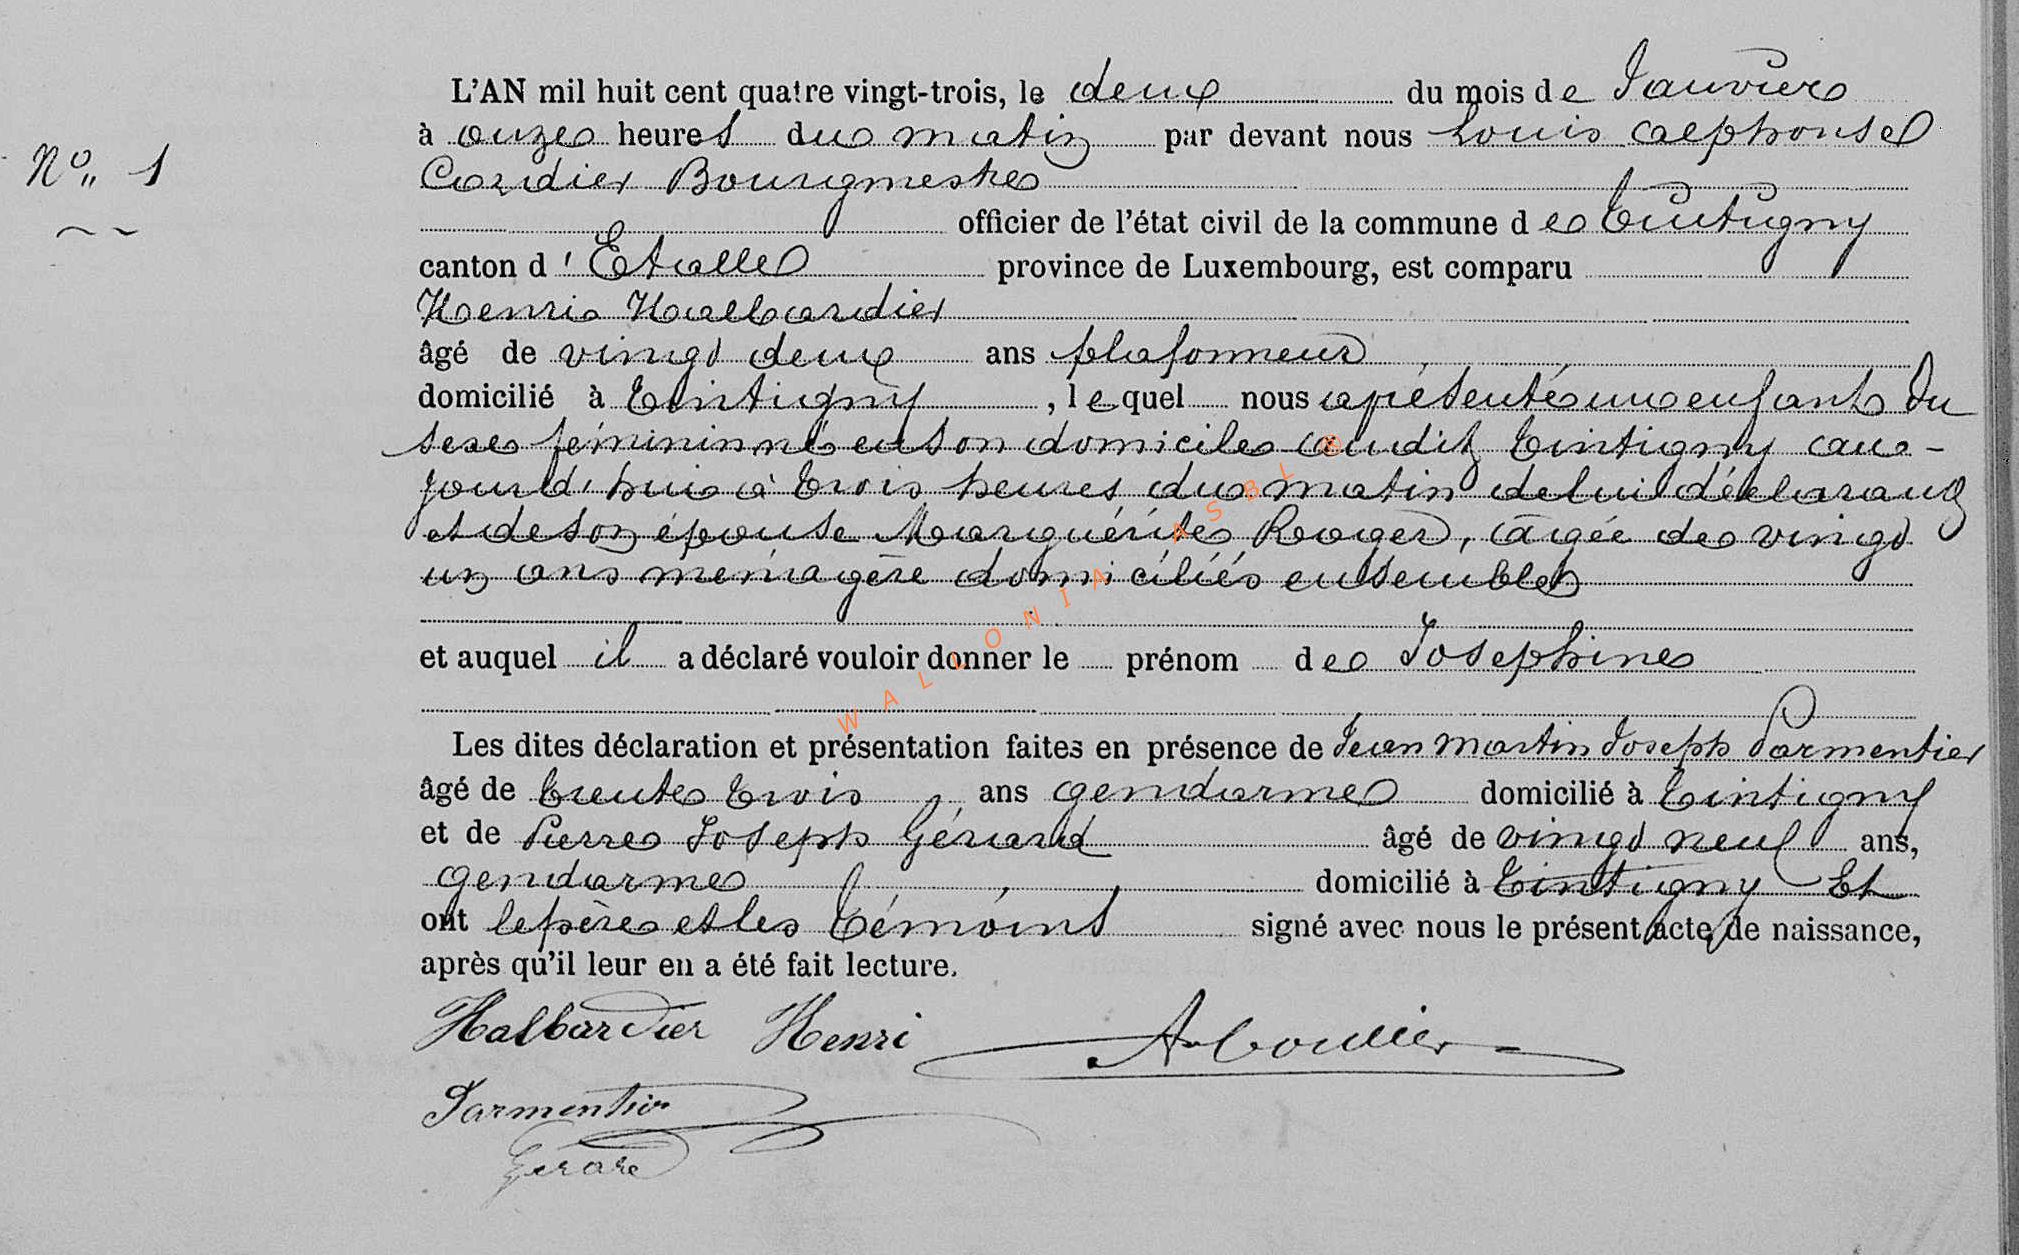 L'AN mil huit cent quatre vingt-trois, le deux du mois de Janvier
à onze heures du matin par devant nous Louis Alphonse
N° 1
Cordier Bourgmestre
officier de l'état civil de la commune de Tintigny
canton d'Etalle province de Luxembourg, est comparu
Henri Halbardier
âgé de vingt deux ans plafonneur
domicilié à Tintigny, lequel nous a présenté un enfant du
sexe féminin né en son domicile audit Tintigny au-
jourd'hui à trois heures du matin de lui déclarant
et de son épouse Marguérite Roger, âgée de vingt
un ans ménagère domiciliés ensemble
et auquel il a déclaré vouloir donner le prénom de Josephine
Les dites déclaration et présentation faites en présence de Jean Martin Joseph Parmentier
âgé de trente trois ans gendarme domicilié à Tintigny
et de Pierre Joseph Gérard âgé de vingt neuf ans,
gendarme domicilié à Tintigny Et
ont le père et les témoins signé avec nous le présent acte de naissance,
après qu'il leur en a été fait lecture.
Halbardier Henri A Cordier
Parmentier
Gérard
WALLONIA ASBL ®